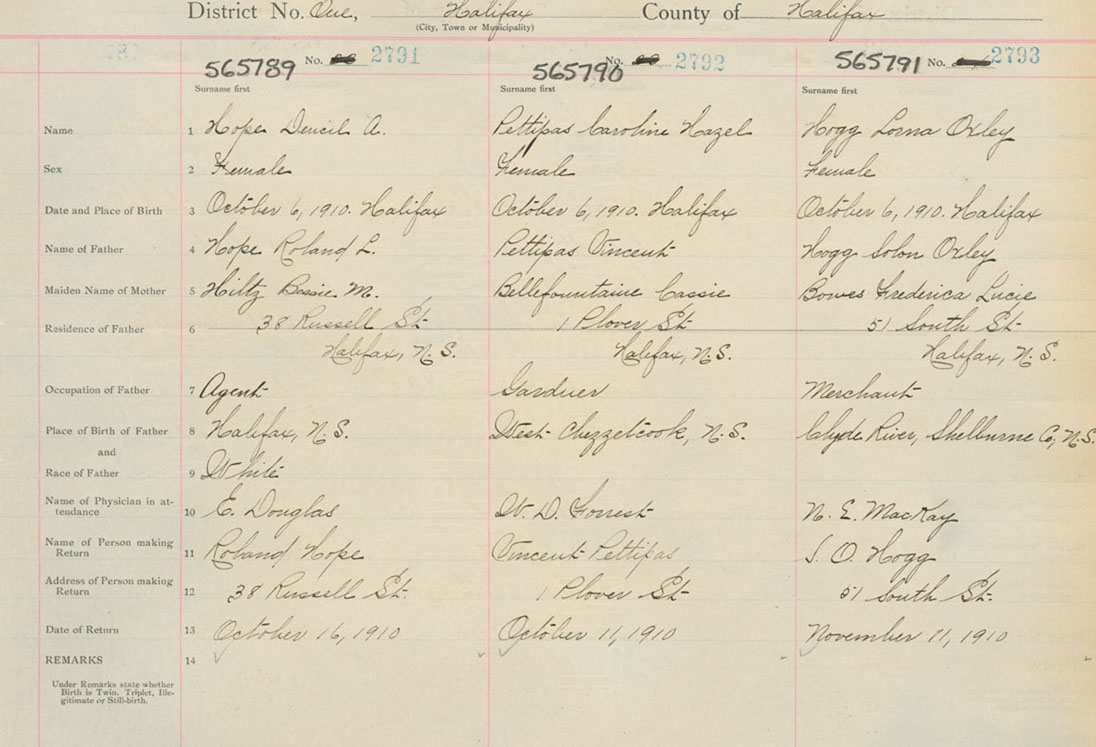 District No. One, Halifax County of Halifax
(City, Town or Municipality)
565789 No. 2791 565790 No. 2792 565791 No. 2793
Surname first Surname first Surname first
Name 1 Hope Dencil A. Pettipas Caroline Hazel Hogg Lorna Oxley
Sex 2 Female Female Female
Date and Place of Birth 3 October 6, 1910. Halifax October 6, 1910. Halifax October 6, 1910. Halifax
Name of Father 4 Hope Roland L. Pettipas Vincent Hogg Solon Oxley
Maiden Name of Mother 5 Hiltz Bessie M. Bellefountaine Cassie Bowes Frederica Lucie
Residence of Father 6 38 Russell St- 1 Plover St- 51 South St-
Halifax, N.S. Halifax, N.S. Halifax, N.S.
Occupation of Father 7 Agent Gardner Merchant
Place of Birth of Father 8 Halifax, N.S. West Chezzetcook, N.S. Clyde River, Shelburne Co, N.S.
and
Race of Father 9 White
Name of Physician in at- 10 E. Douglas W. D. Forrest N. E. MacKay
tendance
Name of Person making 11 Roland Hope Vincent Pettipas S. O. Hogg
Return
Address of Person making 12 38 Russell St. 1 Plover St- 51 South St-
Return
Date of Return 13 October 16, 1910 October 11, 1910 November 11, 1910
REMARKS 14
Under Remarks state whether
Birth is Twin, Triplet, Ille-
gitimate or Still-birth.